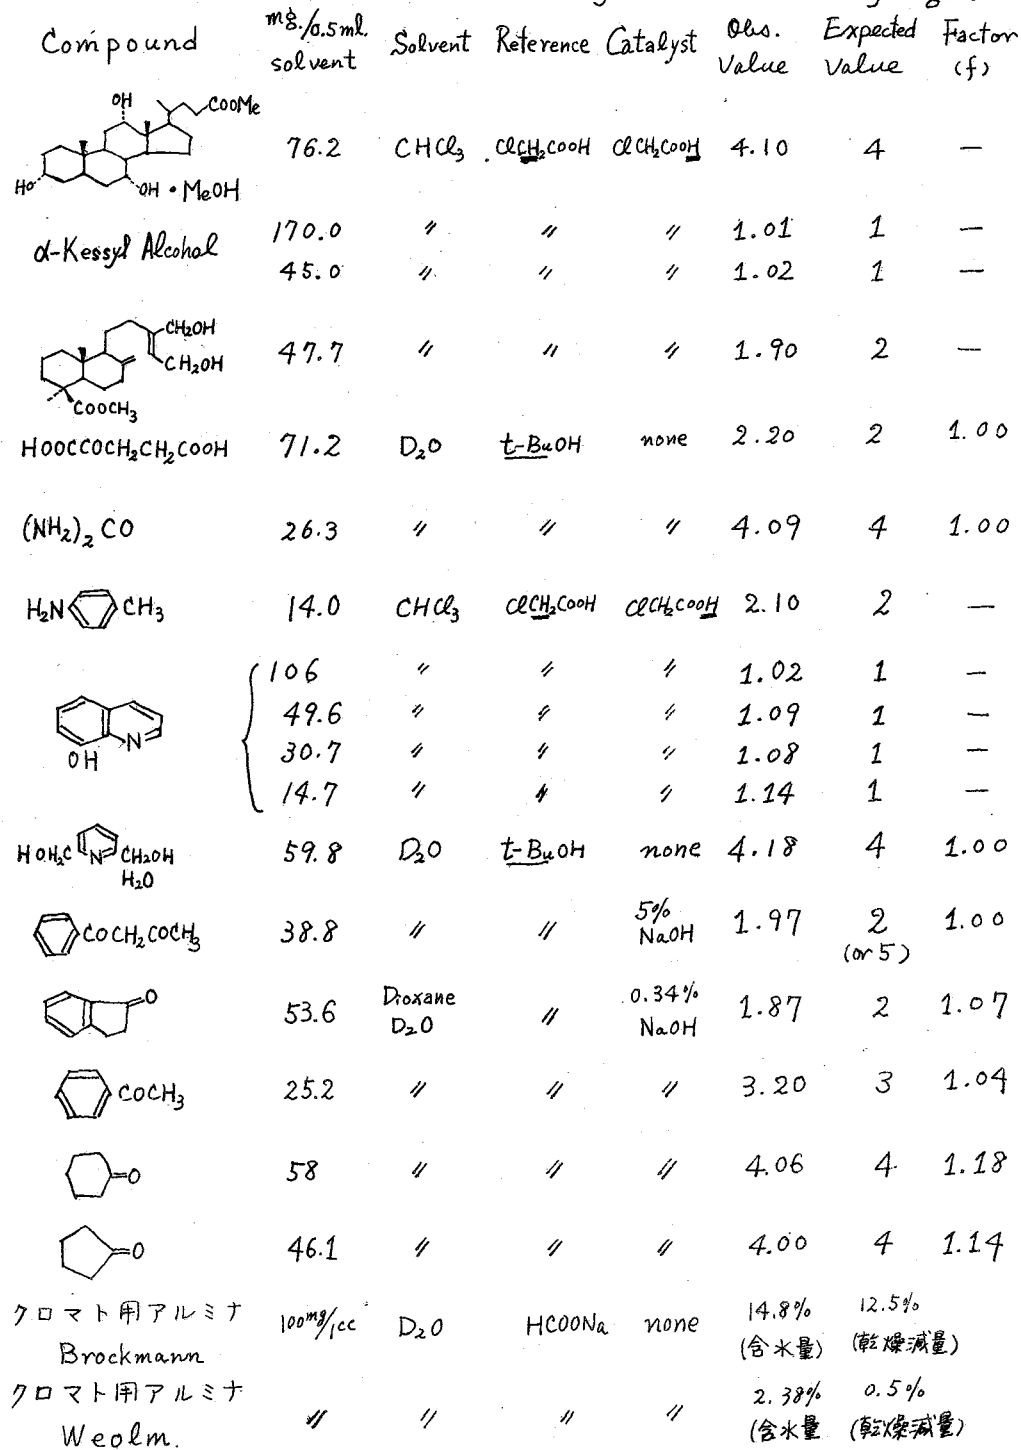 Compound mg./0.5ml. solvent Solvent Reference Catalyst Obs. Value Expected Value Factor (f)
OH COOMe HO OH • MeOH 76.2 CHCl3 ClCH2COOH ClCH2COOH 4.10 4 —
α-Kessyl Alcohol 170.0 〃 〃 〃 1.01 1 —
45.0 〃 〃 〃 1.02 1 —
CH2OH CH2OH COOCH3 47.7 〃 〃 〃 1.90 2 —
HOOCCOCH2CH2COOH 71.2 D2O t-BuOH none 2.20 2 1.00
(NH2)2CO 26.3 〃 〃 〃 4.09 4 1.00
H2N CH3 14.0 CHCl3 ClCH2COOH ClCH2COOH 2.10 2 —
106 〃 〃 〃 1.02 1 —
49.6 〃 〃 〃 1.09 1 —
N OH 30.7 〃 〃 〃 1.08 1 —
14.7 〃 〃 〃 1.14 1 —
HOH2C N CH2OH H2O 59.8 D2O t-BuOH none 4.18 4 1.00
COCH2COCH3 38.8 〃 〃 5% NaOH 1.97 2 (or 5) 1.00
O 53.6 Dioxane D2O 〃 0.34% NaOH 1.87 2 1.07
COCH3 25.2 〃 〃 〃 3.20 3 1.04
=O 58 〃 〃 〃 4.06 4 1.18
=O 46.1 〃 〃 〃 4.00 4 1.14
クロマト用アルミナ Brockmann 100mg/1cc D2O HCOONa none 14.8% (含水量) 12.5% (乾燥減量)
クロマト用アルミナ Weolm. 〃 〃 〃 〃 2.38% (含水量 0.5% (乾燥減量)